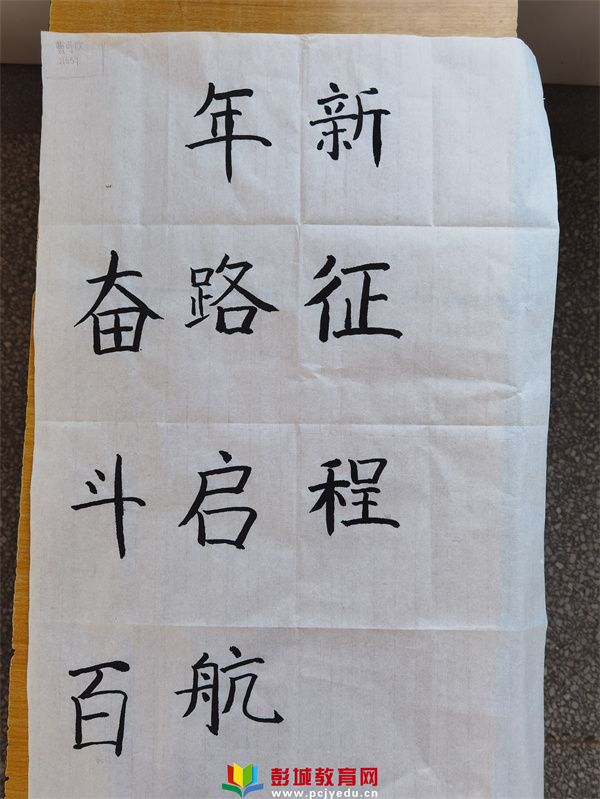 奋斗百
年路启航
新征程
彭城教育网
www.pcjyedu.cn